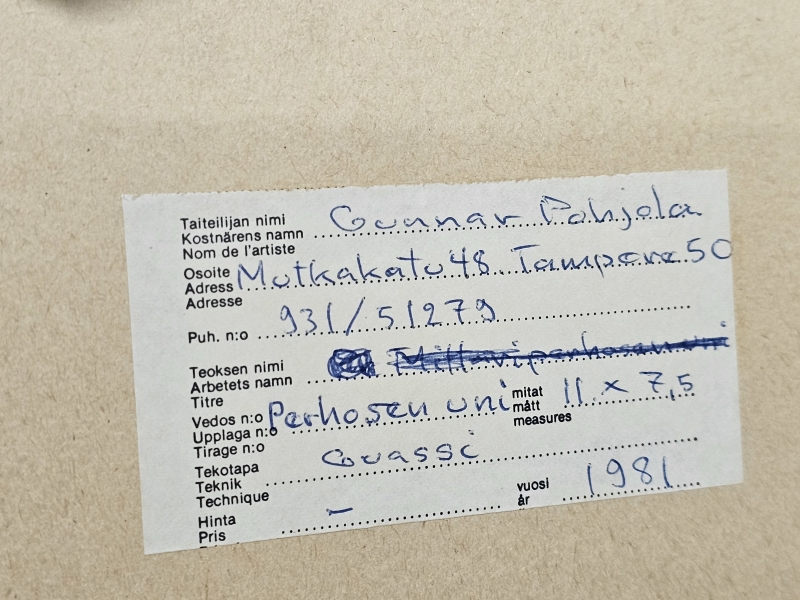 Taiteilijan nimi
Kostnärens namn Gunnar Pohjola
Nom de l'artiste
Osoite
Adress Mutkakatu 48 Tampere 50
Adresse
Puh. n:o 931/51279
Teoksen nimi
Arbetets namn
Titre
Vedos n:o Perhosen uni mitat 11 x 7,5
Upplaga n:o mått
Tirage n:o measures
Tekotapa
Teknik Guassi
Technique
Hinta – vuosi 1981
Pris år